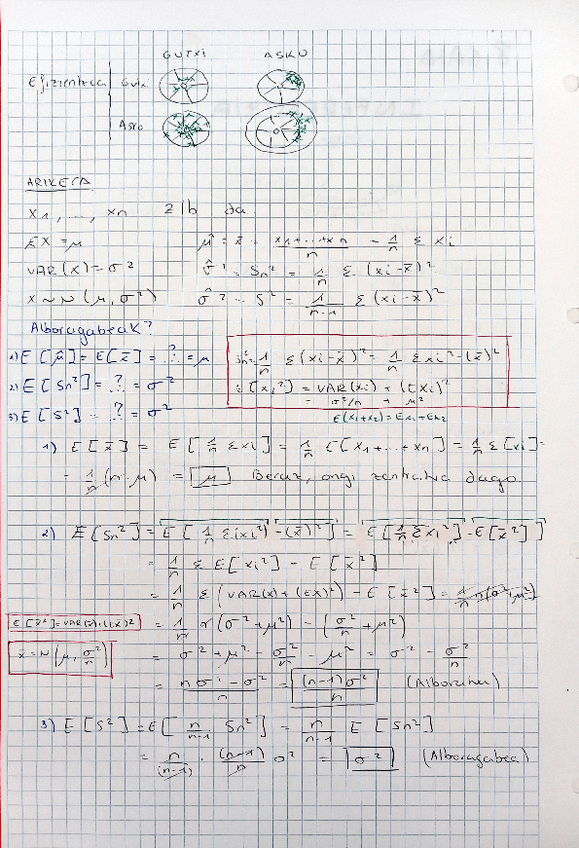 GUTXI ASKO
Efizientea Gutxi
Asko
ARIKETA
x1, ..., xn zlb da
EX = μ μ̂ = x̄ = x1+...+xn / n = 1/n Σ xi
VAR(x) = σ² σ̂² = Sn² = 1/n Σ (xi - x̄)²
x ~ N(μ, σ²) σ̂² = S² = 1/(n-1) Σ (xi - x̄)²
Alboragabeak?
1) E[μ̂] = E[x̄] = ? = μ
2) E[Sn²] = ? = σ²
3) E[S²] = ? = σ²
Sn² = 1/n Σ(xi - x̄)² = 1/n Σxi² - (x̄)²
E[xi²] = VAR(xi) + (Exi)²
= σ²/n + μ²
E(x1+x2) = Ex1 + Ex2
1) E[x̄] = E[1/n Σxi] = 1/n E[x1+...+xn] = 1/n Σ E[xi] =
= 1/n (n·μ) = μ Beraz, ongi zentratua dago
2) E[Sn²] = E[1/n Σ(xi²) - (x̄)²] = E[1/n Σxi²] - E[x̄²]
= 1/n Σ E[xi²] - E[x̄²]
= 1/n Σ (VAR(x) + (EX)²) - E[x̄²] = 1/n n(σ²+μ²)
E[x̄²] = VAR(x̄) + (Ex̄)² = 1/n n(σ²+μ²) - (σ²/n + μ²)
x̄ = N(μ, σ²/n) = σ² + μ² - σ²/n - μ² = σ² - σ²/n
= nσ² - σ² / n = (n-1)σ² / n (Alboratua)
3) E[S²] = E[n/(n-1) Sn²] = n/(n-1) E[Sn²]
= n/(n-1) · (n-1)/n σ² = σ² (Alboragabea)